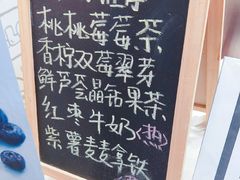 桃桃莓莓茶
香柠双莓翠芽
鲜芦荟晶钻果茶
红枣牛奶(热)
紫薯麦麦拿铁